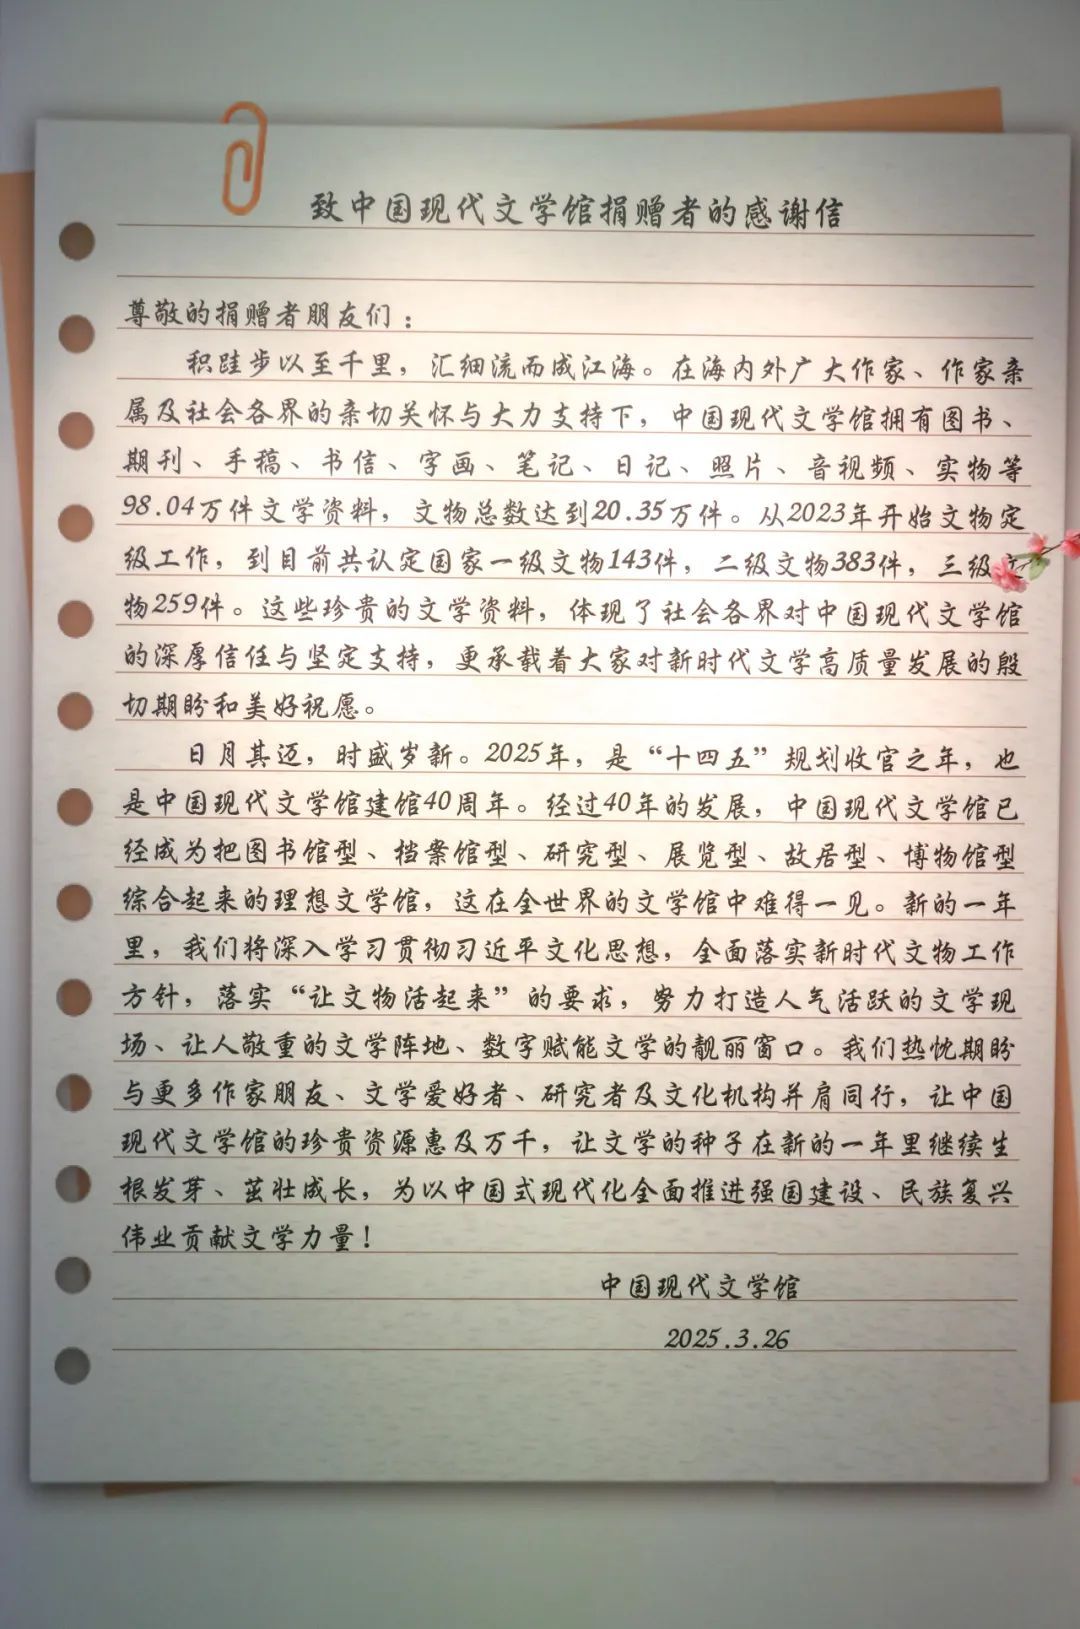 致中国现代文学馆捐赠者的感谢信
尊敬的捐赠者朋友们：
积跬步以至千里，汇细流而成江海。在海内外广大作家、作家亲
属及社会各界的亲切关怀与大力支持下，中国现代文学馆拥有图书、
期刊、手稿、书信、字画、笔记、日记、照片、音视频、实物等
98.04万件文学资料，文物总数达到20.35万件。从2023年开始文物定
级工作，到目前共认定国家一级文物143件，二级文物383件，三级文
物259件。这些珍贵的文学资料，体现了社会各界对中国现代文学馆
的深厚信任与坚定支持，更承载着大家对新时代文学高质量发展的殷
切期盼和美好祝愿。
日月其迈，时盛岁新。2025年，是“十四五”规划收官之年，也
是中国现代文学馆建馆40周年。经过40年的发展，中国现代文学馆已
经成为把图书馆型、档案馆型、研究型、展览型、故居型、博物馆型
综合起来的理想文学馆，这在全世界的文学馆中难得一见。新的一年
里，我们将深入学习贯彻习近平文化思想，全面落实新时代文物工作
方针，落实“让文物活起来”的要求，努力打造人气活跃的文学现
场、让人敬重的文学阵地、数字赋能文学的靓丽窗口。我们热忱期盼
与更多作家朋友、文学爱好者、研究者及文化机构并肩同行，让中国
现代文学馆的珍贵资源惠及万千，让文学的种子在新的一年里继续生
根发芽、茁壮成长，为以中国式现代化全面推进强国建设、民族复兴
伟业贡献文学力量！
中国现代文学馆
2025.3.26